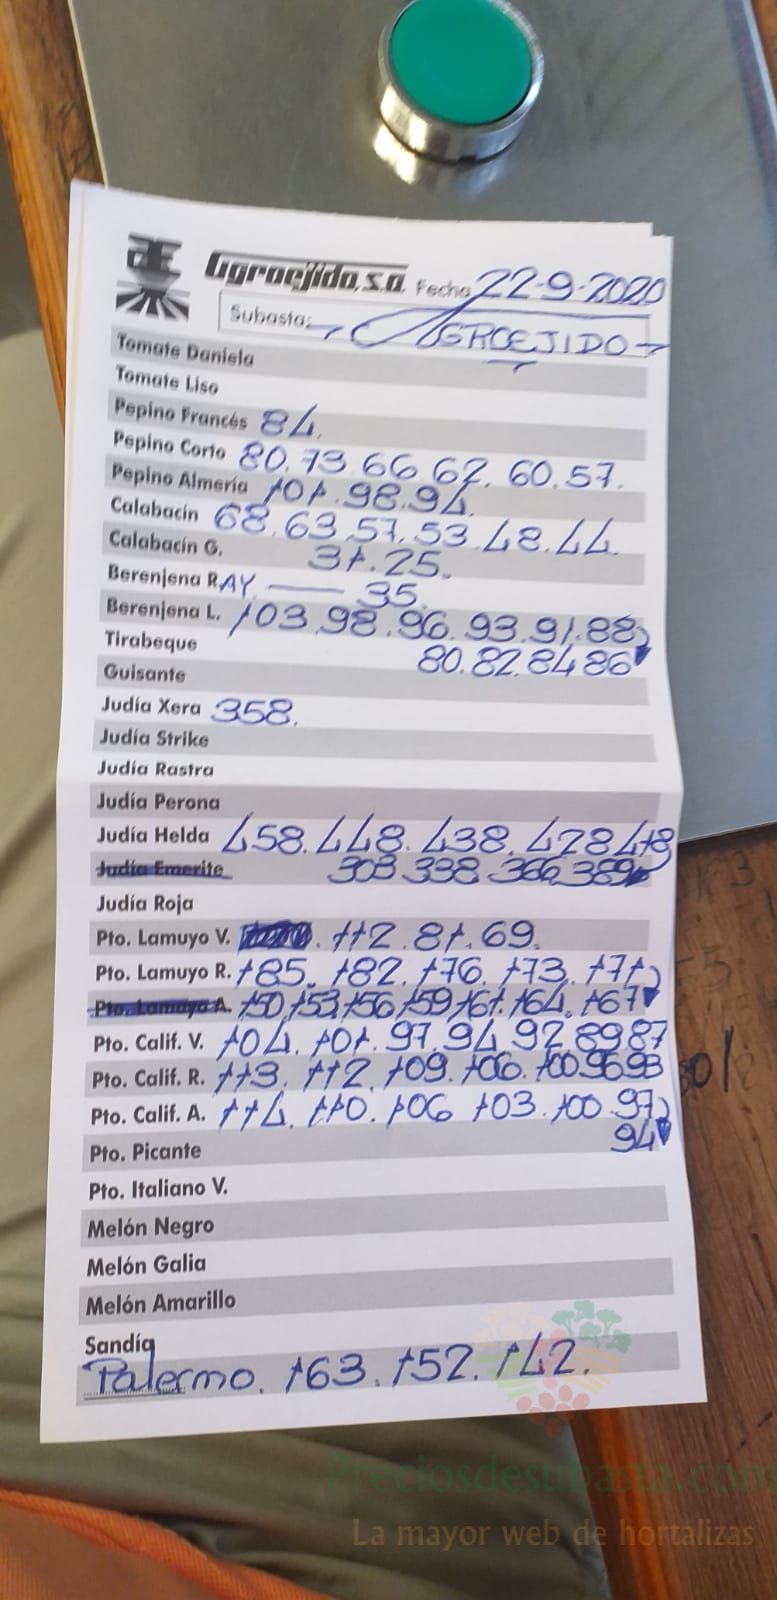 Agroejido, s.a. Fecha 22-9-2020
Subasta: AGROEJIDO
Tomate Daniela
Tomate Liso
Pepino Francés 84.
Pepino Corto 80.73.66 62.60.57.
Pepino Almería 101.98.94.
Calabacín 68.63.57.53.48.44.
Calabacín G. 31.25.
Berenjena RAY — 35.
Berenjena L. 103.98.96.93.91.88
Tirabeque 80.82.84 86
Guisante
Judía Xera 358.
Judía Strike
Judía Rastra
Judía Perona
Judía Helda 458.448.438.428 418
Judía Emerite 303 338 366 389
Judía Roja
Pto. Lamuyo V. 112.81.69.
Pto. Lamuyo R. 185.182.176.173.171
Pto. Lamuyo A. 150.153.156 159 161.164.167
Pto. Calif. V. 104.101.97.94 92 89 87
Pto. Calif. R. 113.112.109.106.100 96 93
Pto. Calif. A. 114.110.106 103.100.97
94
Pto. Picante
Pto. Italiano V.
Melón Negro
Melón Galia
Melón Amarillo
Sandía
Palermo. 163.152.142.
Preciosdesubasta.com
La mayor web de hortalizas